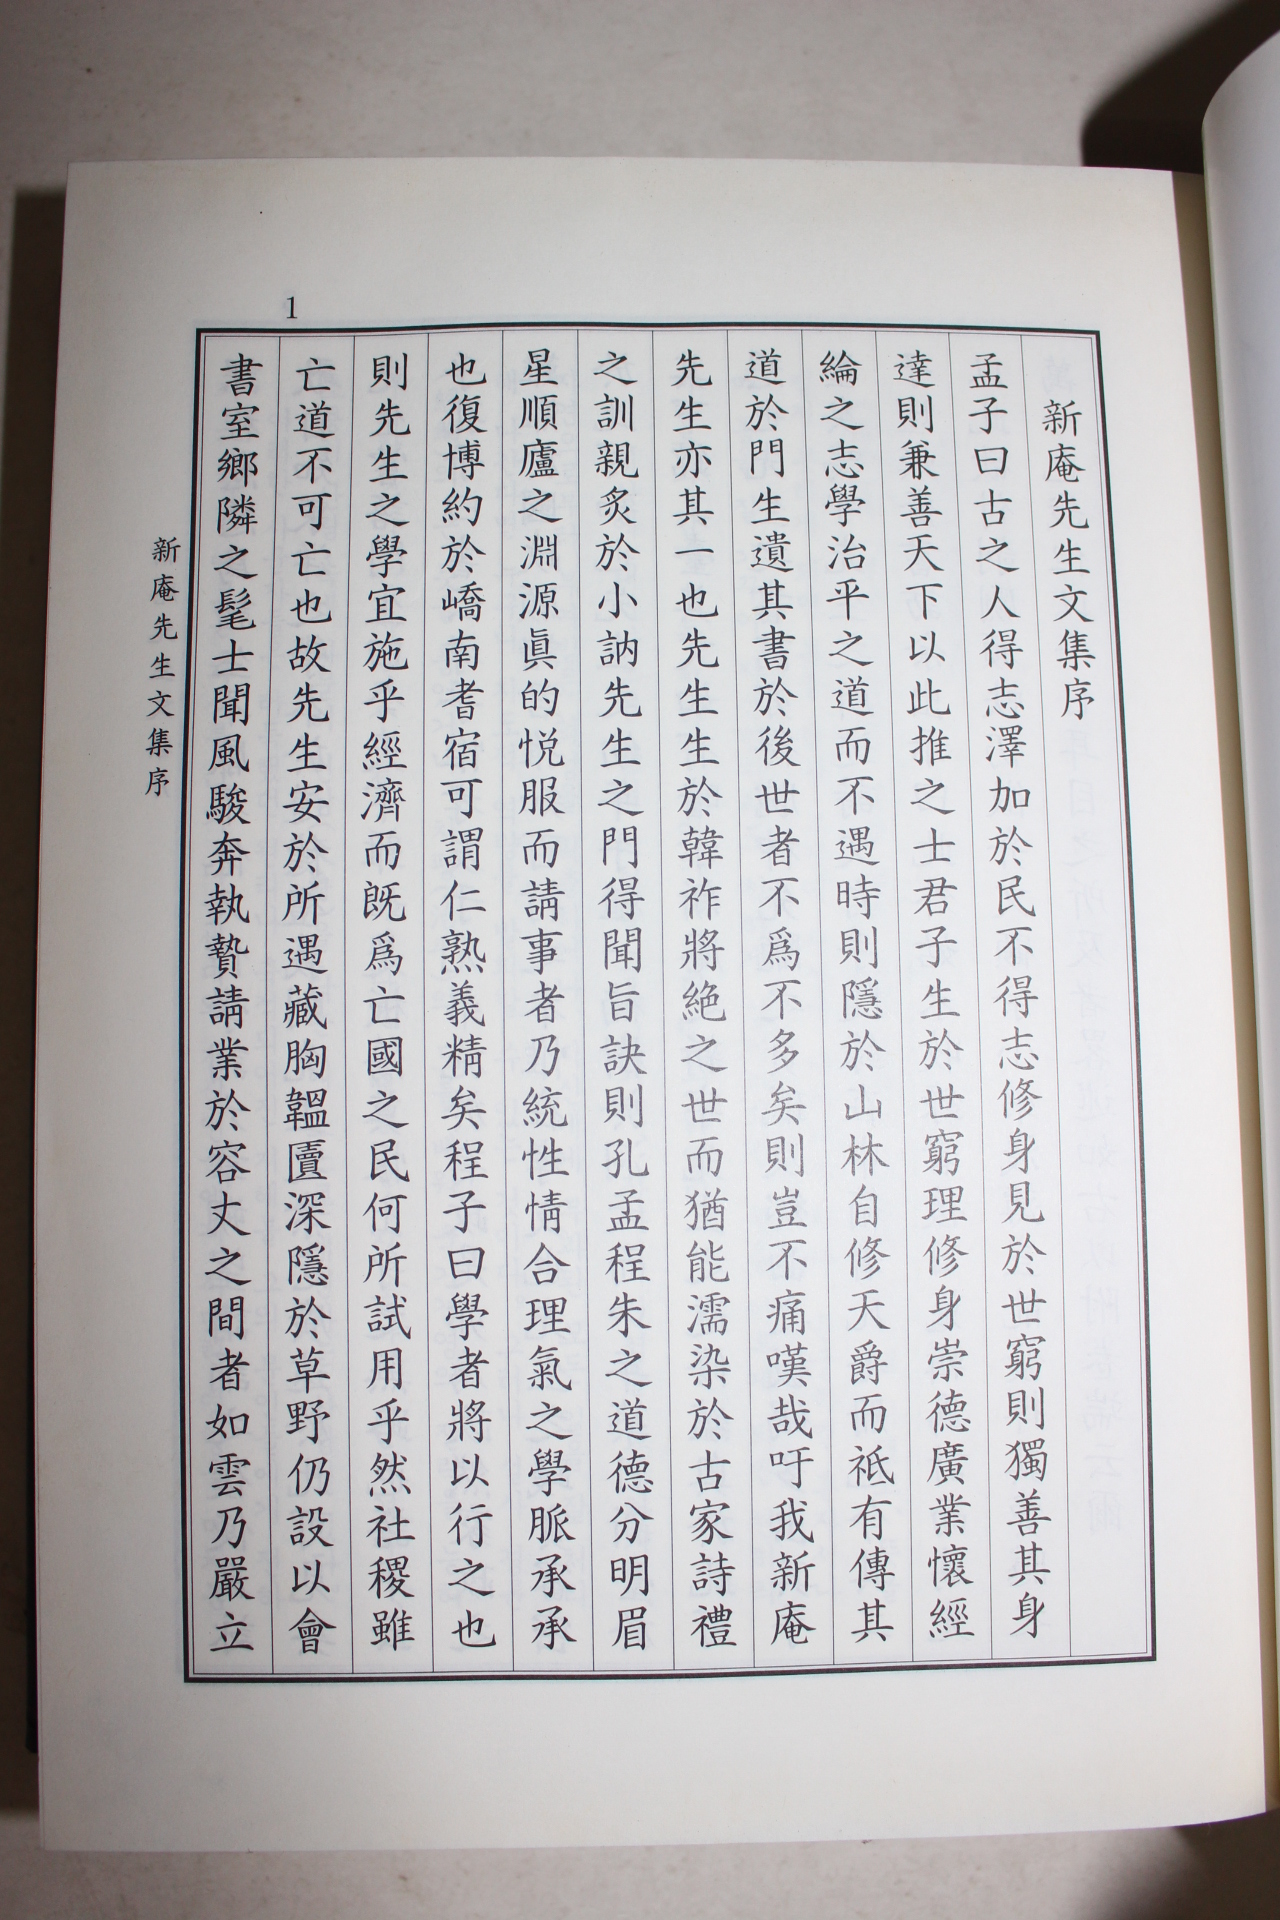 新庵先生文集序
孟子曰古之人得志澤加於民不得志修身見於世窮則獨善其身
達則兼善天下以此推之士君子生於世窮理修身崇德廣業懷經
綸之志學治平之道而不遇時則隱於山林自修天爵而祇有傳其
道於門生遺其書於後世者不爲不多矣則豈不痛嘆哉吁我新庵
先生亦其一也先生生於韓祚將絶之世而猶能濡染於古家詩禮
之訓親炙於小訥先生之門得聞旨訣則孔孟程朱之道德分明眉
星順廬之淵源眞的悅服而請事者乃統性情合理氣之學脈承承
也復博約於嶠南耆宿可謂仁熟義精矣程子曰學者將以行之也
則先生之學宜施乎經濟而既爲亡國之民何所試用乎然社稷雖
亡道不可亡也故先生安於所遇藏胸韞匵深隱於草野仍設以會
書室鄉隣之髦士聞風駿奔執贄請業於容丈之間者如雲乃嚴立
新庵先生文集序
1